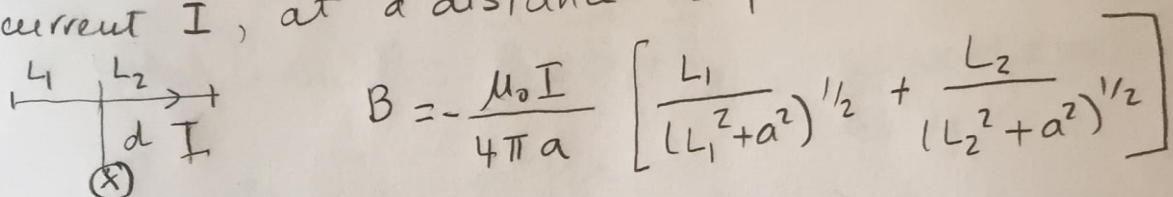 current I, at a
L₁ L₂
d I
B = - μ₀I / 4πa [ L₁ / (L₁² + a²)^1/2 + L₂ / (L₂² + a²)^1/2 ]